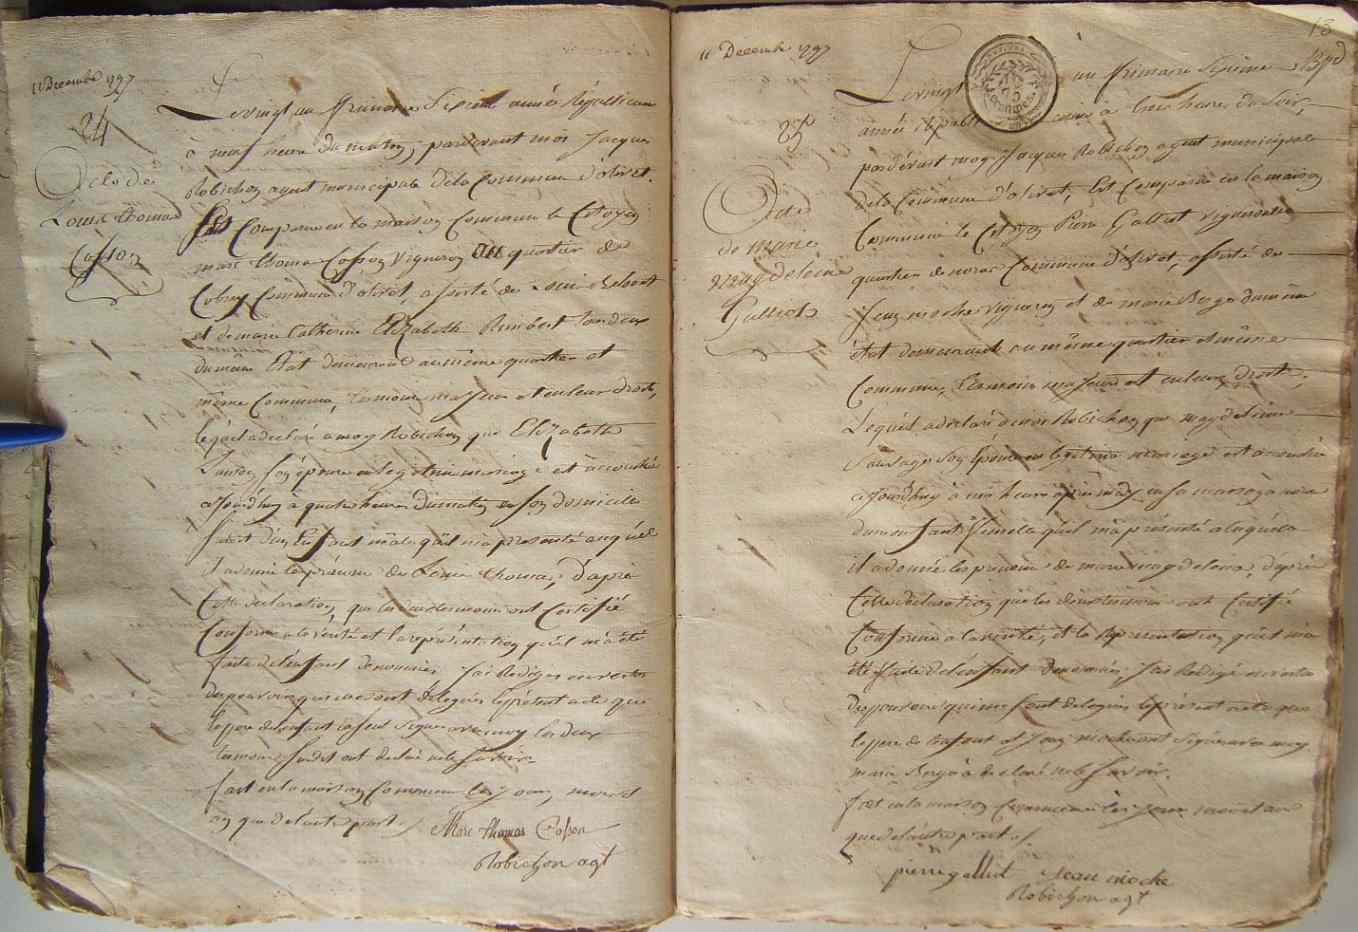 11 Decembre 1797
24
Acte de
Louis thomas
Cosson
Le vingt un frimaire Sixieme année Républicain
à neuf heure du matin, pardevant moi Jacques
Robichon agent municipale de la Commune d'olivet.
Est Comparu en la maison Commune le Citoyen
marc thomas Cosson vigneron au quartier de
Commune d'olivet, assisté de Louis
et de marie Catherine Elizabeth Rimbert tou deux
du meme Etat demeurant au même quartier et
même Commune, témoins majeur et en leur droits,
lequel a declaré a moy Robichon que Elizabeth
son épouse en legitime mariage est accouchée
aujourd'huy à quatre heures du matin en son domicile
d'un Enfant mâle qu'il m'a presenté auquel
il a donné le prenom de Louis thomas, d'après
Cette declaration, que les deux temoins ont Certifié
Conforme a la vérité et la représentation qu'il m'a été
faite de l'enfant denommé, J'ai Rédigé en vertu
des pouvoirs qui me sont délégués le présent acte que
le pere de l'enfant a seul signé avec moy les deux
temoins susdit ont declaré ne le savoir.
fait en la maison Commune les jour, mois et
an que de l'autre part
Marc thomas Cosson
Robichon agt
11 Decembre 1797
13
25
Acte
de Marie
Magdeleine
Galliot
Le vingt un frimaire Sixieme
année Republicaine à trois heures du Soir,
pardevant moy Jacques Robichon agent municipale
de la Commune d'olivet, Est Comparu en la maison
Commune le Citoyen Pierre Galliot vigneron
quartier de Commune d'olivet, assisté de
Jean vigneron et de marie du même
état demeurant au même quartier et même
Commune, temoins majeurs et en leurs droits,
Lequel a declaré à moi Robichon que magdeleine
Sauvage son Epouse en legitime mariage est accouchée
aujourd'huy à une heure après midy en sa maison
d'un enfant femelle qu'il m'a présenté a laquelle
il a donné les prenoms de marie magdeleine, d'après
Cette déclaration que les deux temoins ont Certifié
Conforme a la verité, et la Représentation qu'il m'a
été faite de l'enfant denommé, J'ai Redigé en vertu
des pouvoirs qui me sont delegués le présent acte que
le pere de l'enfant et Jean ont signé avec moy
marie a declaré ne le savoir.
fait en la maison Commune les jour mois et an
que de l'autre part
pierre galliot
Robichon agt